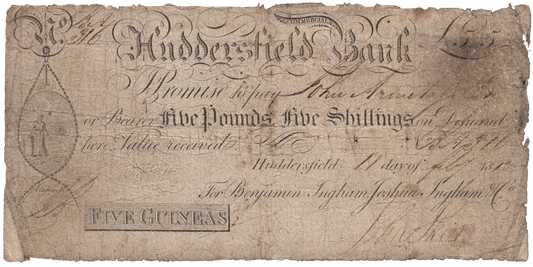 No
COMMERCIAL
Huddersfield Bank £5,,5
I Promise to pay John
or Bearer Five Pounds Five Shillings on Demand
here Value received
Huddersfield 11 day of
For Benjamin Ingham, Joshua Ingham & Co
FIVE GUINEAS